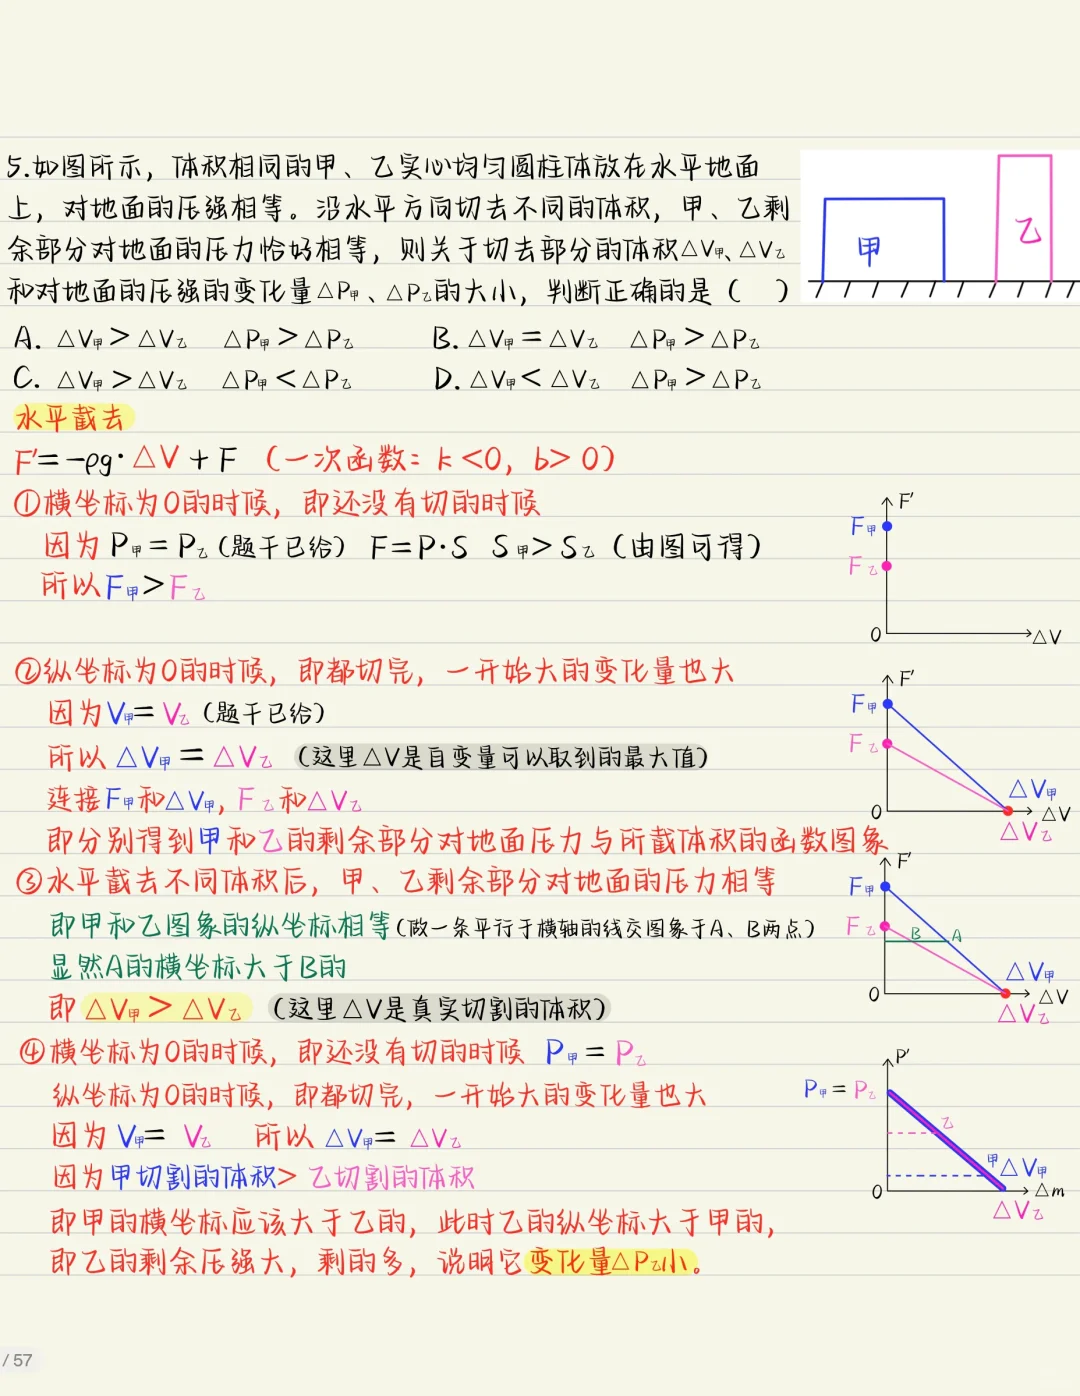 5.如图所示，体积相同的甲、乙实心均匀圆柱体放在水平地面
上，对地面的压强相等。沿水平方向切去不同的体积，甲、乙剩
余部分对地面的压力恰好相等，则关于切去部分的体积△V甲、△V乙
和对地面的压强的变化量△P甲、△P乙的大小，判断正确的是（ ）
甲
乙
A. △V甲>△V乙 △P甲>△P乙 B. △V甲=△V乙 △P甲>△P乙
C. △V甲>△V乙 △P甲<△P乙 D. △V甲<△V乙 △P甲>△P乙
水平截去
F'=-ρg·△V+F（一次函数：k<0，b>0）
①横坐标为0的时候，即还没有切的时候
因为P甲=P乙（题干已给）F=P·S S甲>S乙（由图可得）
所以F甲>F乙
F'
F甲
F乙
0
△V
②纵坐标为0的时候，即都切完，一开始大的变化量也大
因为V甲=V乙（题干已给）
所以△V甲=△V乙（这里△V是自变量可以取到的最大值）
连接F甲和△V甲，F乙和△V乙
即分别得到甲和乙的剩余部分对地面压力与所截体积的函数图象
F'
F甲
F乙
0
△V甲
△V
△V乙
③水平截去不同体积后，甲、乙剩余部分对地面的压力相等
即甲和乙图象的纵坐标相等（做一条平行于横轴的线交图象于A、B两点）
显然A的横坐标大于B的
即△V甲>△V乙（这里△V是真实切割的体积）
F'
F甲
F乙
B
A
0
△V甲
△V
△V乙
④横坐标为0的时候，即还没有切的时候 P甲=P乙
纵坐标为0的时候，即都切完，一开始大的变化量也大
因为V甲=V乙 所以△V甲=△V乙
因为甲切割的体积>乙切割的体积
即甲的横坐标应该大于乙的，此时乙的纵坐标大于甲的，
即乙的剩余压强大，剩的多，说明它变化量△P乙小。
P'
P甲=P乙
乙
甲
△V甲
0
△m
△V乙
/ 57